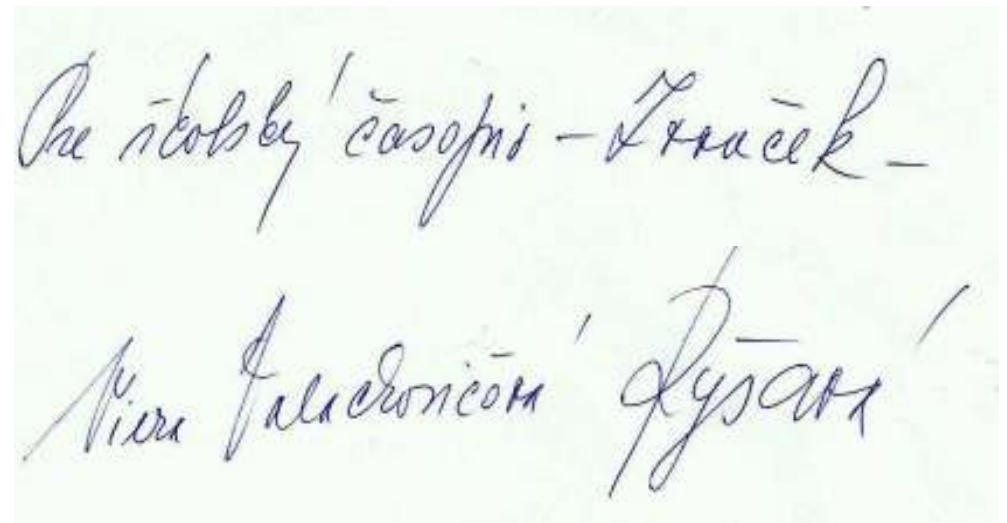 Pre školský časopis – Zvonček –
Viera Valachovičová Ryšavá